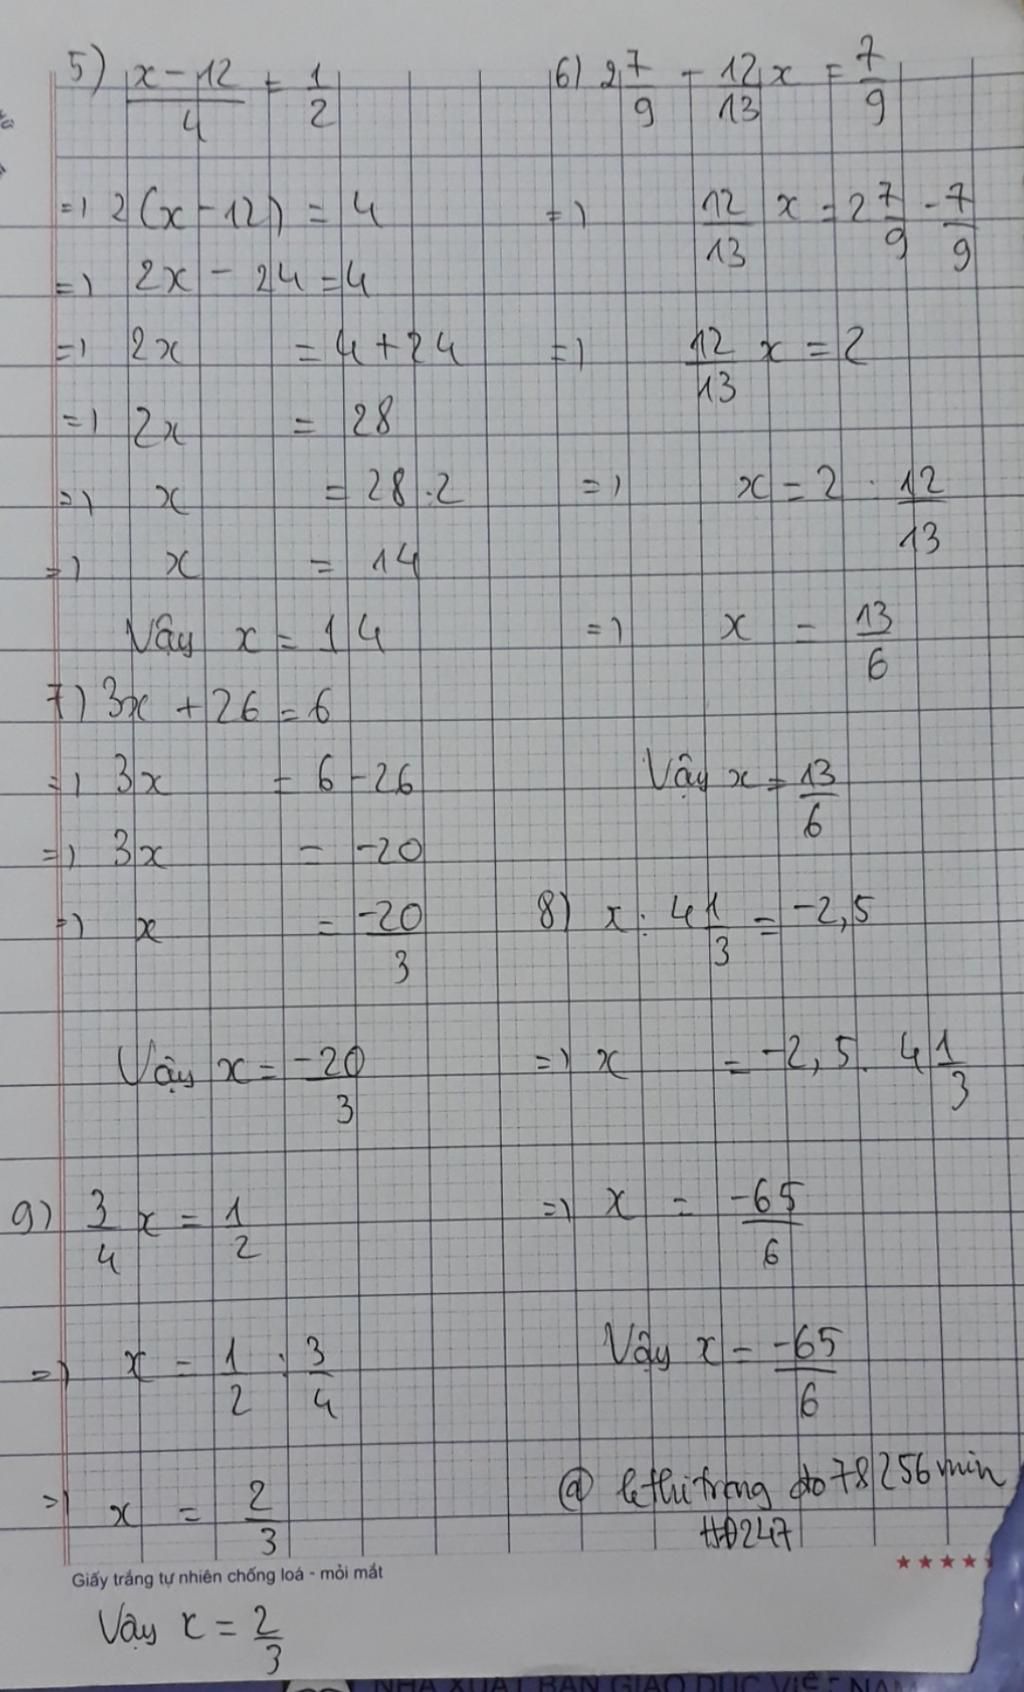 5) (x-12)/4 = 1/2
=) 2(x-12) = 4
=) 2x - 24 = 4
=) 2x = 4+24
=) 2x = 28
=) x = 28:2
=) x = 14
Vậy x = 14
6) 2 7/9 - 12/13 x = 7/9
=) 12/13 x = 2 7/9 - 7/9
=) 12/13 x = 2
=) x = 2 : 12/13
=) x = 13/6
Vậy x = 13/6
7) 3x + 26 = 6
=) 3x = 6 - 26
=) 3x = -20
=) x = -20/3
Vậy x = -20/3
8) x : 4 1/3 = -2,5
=) x = -2,5. 4 1/3
=) x = -65/6
Vậy x = -65/6
9) 3/4 x = 1/2
=) x = 1/2 : 3/4
=) x = 2/3
@ lethitrang do 78256 min
HĐ247
Giấy trắng tự nhiên chống loá - mỏi mắt
Vậy x = 2/3
NHÀ XUẤT BẢN GIÁO DỤC VIỆT NAM